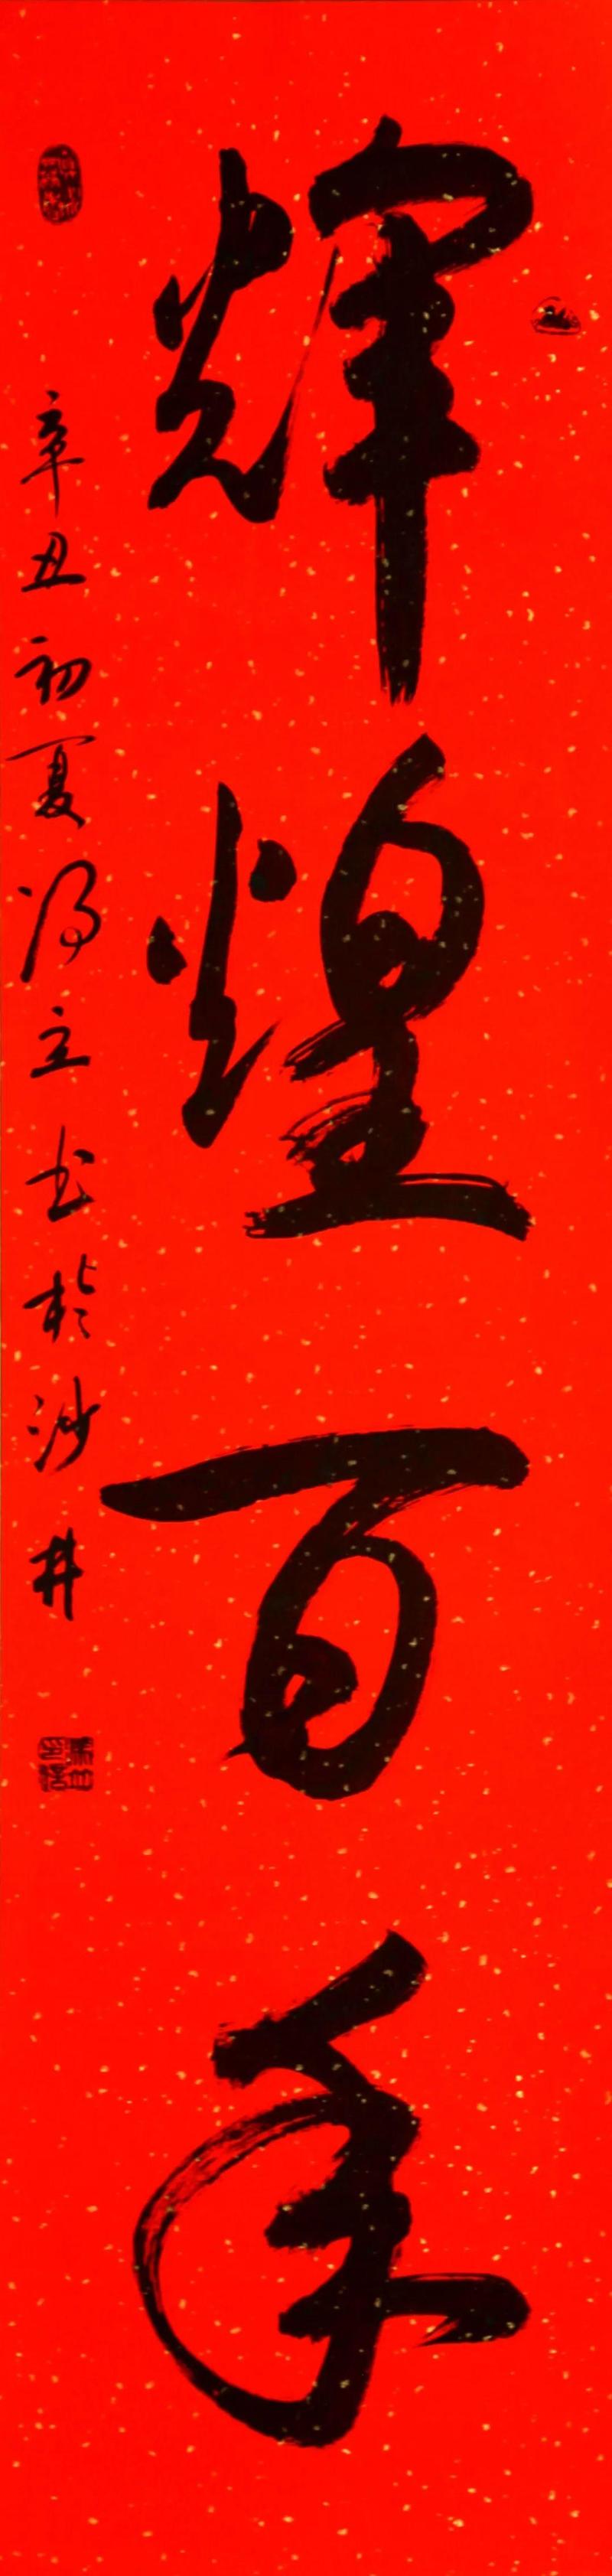 辉煌百年
辛丑初夏冯立书於沙井